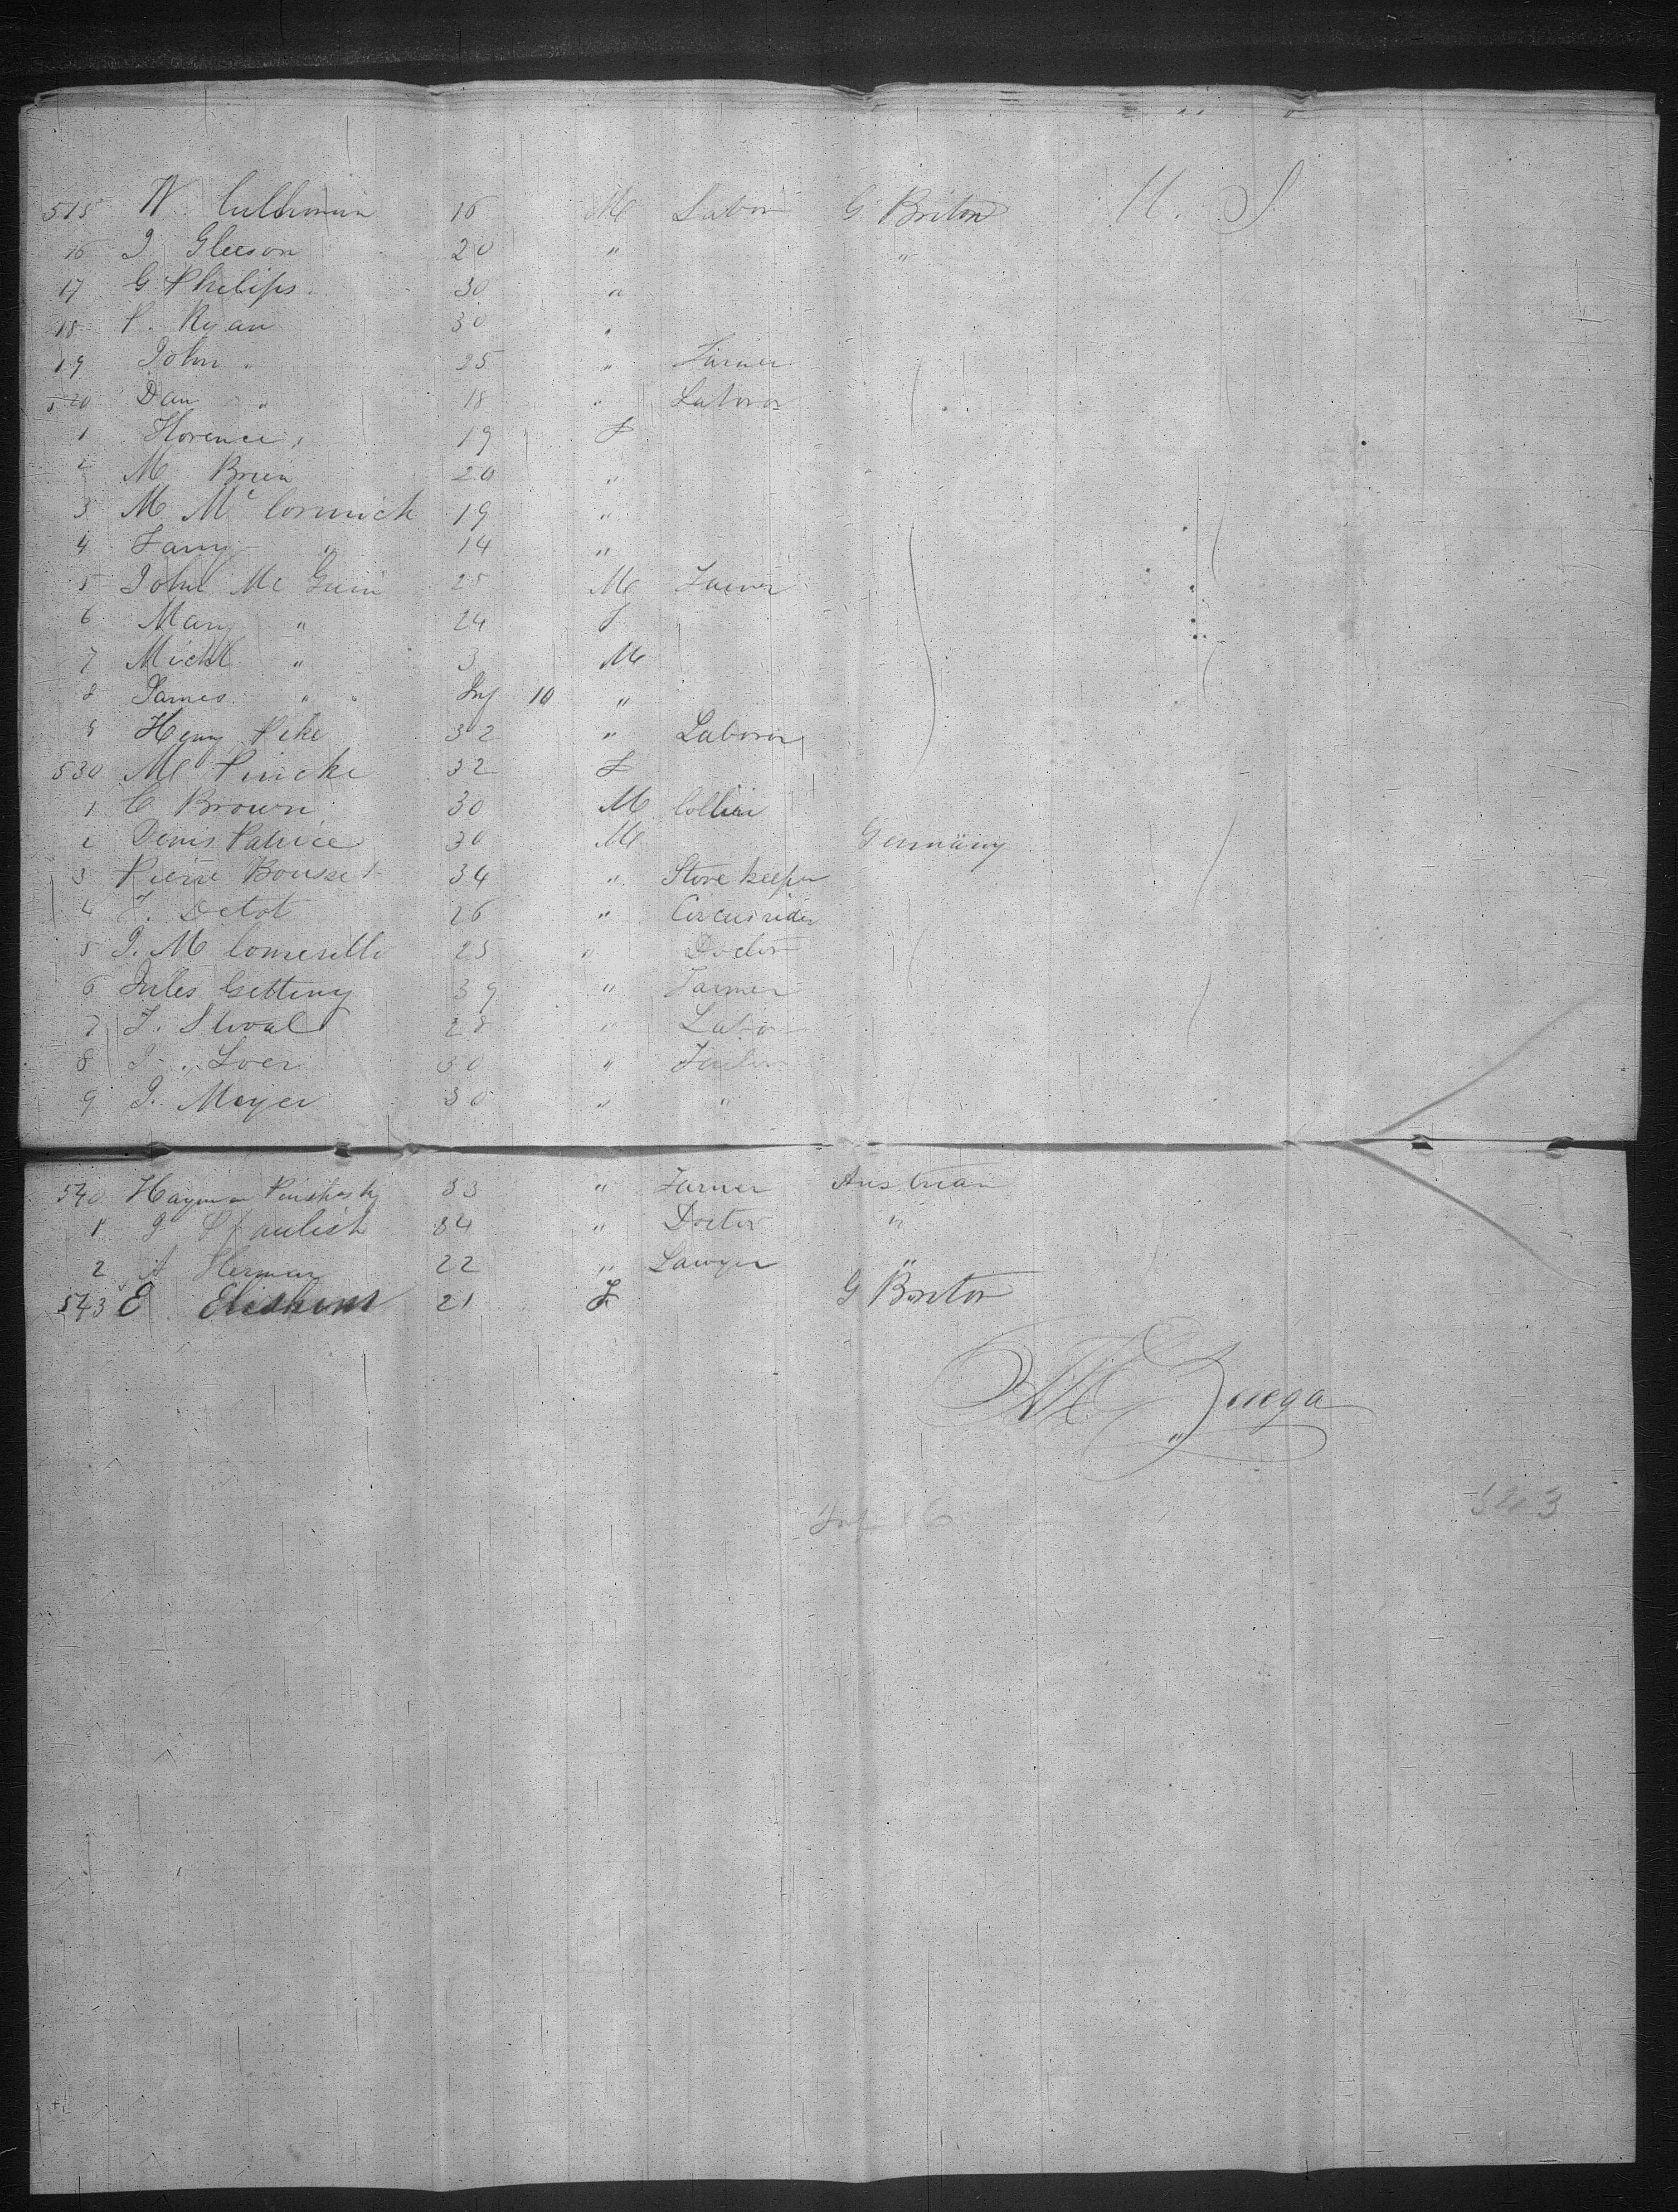 515 W. 16 M Labor G. Briton U. S.
16 J Gleeson 20 " "
17 G Philips 30 "
18 P. Ryan 30 "
19 John " 25 " Farmer
520 Dan " 18 " Laboror
1 Florence " 19 F
2 M Brien 20 "
3 M Mc Cormick 19 "
4 Fany " 14 "
5 John Mc 25 M Farmer
6 Mary " 24 F
7 Michl " 3 M
8 James " Inf 10 "
9 Heny Pike 32 " Laboror
530 M 32 F
1 C Brown 30 M Collier
2 Denis Patrice 30 M Germany
3 Pierre Bousset 34 " Store keeper
4 J. Detot 26 " Circus rider
5 J. M 25 " Doctor
6 Jules Gettiny 39 " Farmer
7 J. 28 " Labor
8 J. Loer 30 "
9 J. Meyer 30 " "
540 Hayman 33 " Farmer Austrian
1 J 34 " Doctor "
2 A Herman 22 " Lawyer "
543 E 21 F. G Briton
Zuega
Inf 16